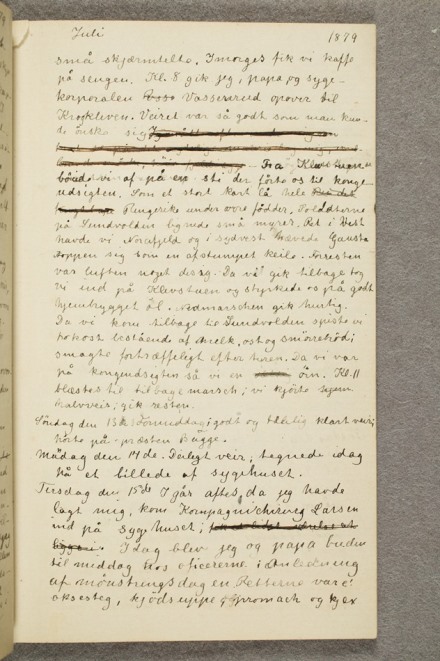 Juli 1879
små skjærmtelte. Imorges fik vi kaffe
på sengen. Kl. 8 gik jeg, papa og syge-
korporalen Vasserud opover til
Krokkleven. Veiret var så godt som man kun-
de ønske sig
Fra Klevstuen
bøide vi af på en sti der førte os til konge-
udsigten. Som et stort kart lå hele
Ringerike under vore fødder. Soldaterne
på Sundvolden lignede små myrer. Ret i Vest
havde vi Norefjeld og i sydvest hævede Gausta
toppen sig som en afstumpet keile. Forresten
var luften noget disig. Da vi gik tilbage tog
vi ind på Klevstuen og styrkede os på godt
hjemmbrygget øl. Nedmarschen gik hurtig.
Da vi kom tilbage til Sundvolden spiste vi
frokost bestående af melk, ost og smørrebrød;
smagte fortræffeligt efter turen. Da vi var
på kongeudsigten så vi en ørn. Kl. 11
blæstes til tilbagemarsch; vi kjørte hjem
halvveis, gik resten.
Søndag den 13de Formiddag; godt og klart veir;
hørte på præsten Bugge.
Mandag den 14de. Deiligt veir; tegnede idag
på et billede af sygehuset.
Tirsdag den 15de I går aftes, da jeg havde
lagt mig, kom Kompagnichirurg Larsen
ind på Sygehuset;
Idag blev jeg og papa buden
til middag hos oficererne i anledning
af mønstringsdagen. Retterne vare:
oksesteg, kjødsuppe, og kjex